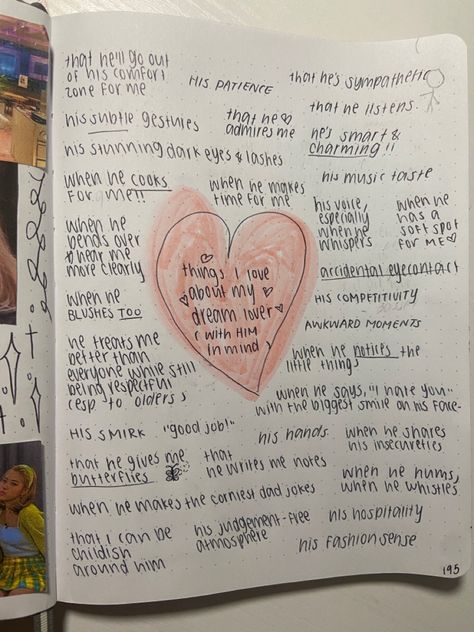 that he'll go out
of his comfort
zone for me
HIS PATIENCE
that he's sympathetic
his subtle gestures
that he
admires me
that he listens.
he's smart &
charming!!
his stunning dark eyes & lashes
when he cooks
for me!!
when he makes
time for me
his music taste
his voice,
especially
when he
whispers
when he
has a
soft spot
for me
when he
bends over
to hear me
more clearly
things I love
about my
dream lover
(with HIM
in mind)
accidental eyecontact
HIS COMPETITIVITY
when he
BLUSHES TOO
AWKWARD MOMENTS
he treats me
better than
everyone while still
being respectful
(esp. to olders)
when he notices the
little things
when he says, "I hate you"
with the biggest smile on his face-
HIS SMIRK
"good job!"
his hands
when he shares
his insecureties
that he gives me
butterflies
that
he writes me notes
when he hums,
when he whistles
when he makes the corniest dad jokes
that i can be
childish
around him
his judgement-free
atmosphere
his hospitality
his fashion sense
195